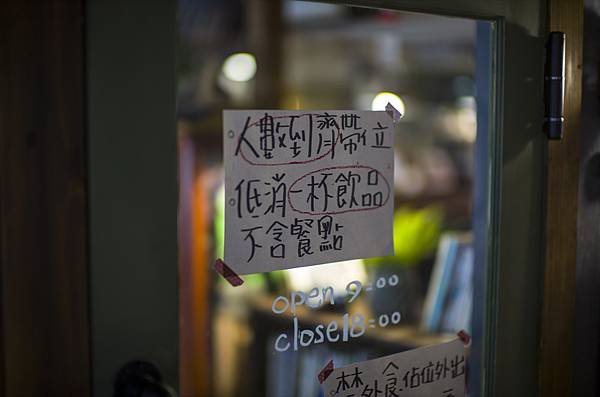 人數到齊帶位
低消一杯飲品
不含餐點
open 9:00
close18:00
禁外食.佔位外出